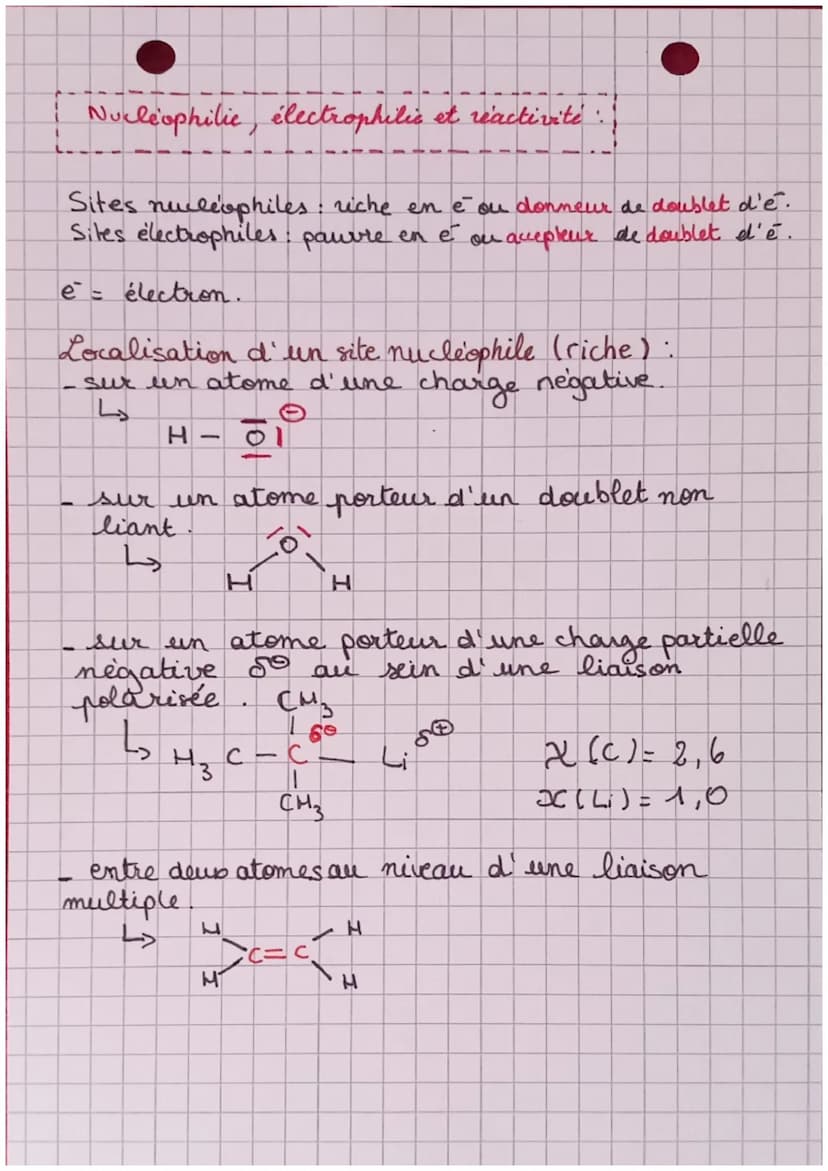 Nucléophilie, électrophilie et réactivité :
Sites nucléophiles : riche en e⁻ ou donneur de doublet d'e⁻.
Sites électrophiles : pauvre en e⁻ ou accepteur de doublet d'e⁻.
e⁻ = électron.
Localisation d'un site nucléophile (riche) :
- sur un atome d'une charge négative.
↳
⊖
H - O|
- sur un atome porteur d'un doublet non
liant.
↳ O
H H
- sur un atome porteur d'une charge partielle
négative δ⊖ au sein d'une liaison
polarisée. CH₃
↳ H₃C - C δ⊖ - Li δ⊕ χ(C) = 2,6
CH₃ χ(Li) = 1,0
- entre deux atomes au niveau d'une liaison
multiple.
↳ H H
C = C
H H